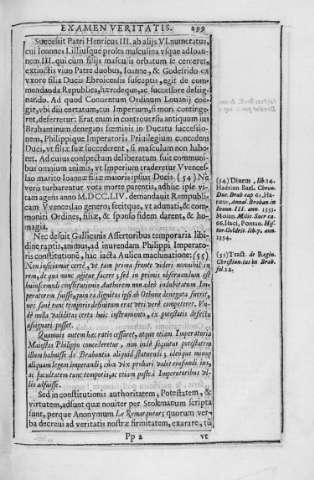 EXAMEN VERITATIS. 299
Successit Patri Henricus III. ab alijs VI. numeratur,
cui Ioannes I. illiusque proles masculina vsque ad Ioan-
nem III. qui cum filijs masculis orbatum se cerneret,
extinctis viuo Patre duobus, Ioanne, & Godefrido ex
vxore filia Ducis Ebroicensis susceptis, egit de com-
mendanda Republica, hæredeque, ac successore desig-
nando. Ad quod Conuentum Ordinum Louanij coe-
git, vbi diu certatum, cùm Imperium, si mori continge-
ret, deferretur: Erat enim in controuersia antiquum ius
Brabantinum denegans fœminis in Ducatu successio-
nem, Philippique Imperatoris Priuilegium concedens
Duci, vt filiæ suæ succederent, si masculum non habe-
ret. Ad cuius conspectum deliberatum fuit communi-
bus omnium animis, vt Imperium traderetur VVences-
lao marito Ioannæ filiæ maioris ipsius Ducis. (54) Ne
verò turbarentur vota morte parentis, adhuc ipse vi-
tam agens anno M.DCC.LIV. demandauit Rempubli-
cam VVenceslao genero, fecitque, vt adunati, & com-
moniti Ordines, filiæ, & sponso fidem darent, & ho-
magia.
Nec desuit Gallicanis Assertoribus temporaria libi-
dine raptis, animus, ad inurendam Philippi Imperato-
ris constitutioni, hac iacta Aulica machinatione: (55)
Non inficiamur certè, vt tam prima fronte videri nonnihil in
rem, de qua nunc agitur facere, sed in primis obseruandum est
huiuscemodi constitutionis Authorem non adeò indubitatum Im-
peratorem fuisse, quam ea dignitas ipsis ab Othone denegata fuerit,
nec sanè eum temporis desiderium erat veri verè competeret. Vn-
de nulla validitas certa huic instrumento, ex postfactis defectu
assignari posset.
Quamuis autem hæc ratio cessaret, atque etiam Imperatoria
Maiestas Philippo concederetur, non inde sequitur potestatem
illum habuisse de Brabantia aliquid statuendi; ideoque noneq
aliquam legem imponendi; cùm vix probari valeat eiusmodi ius,
ac facultatem tunc temporis, ac etiam posteà Imperatoribus vi-
lis adfuisse.
Sed in constitutionis authoritatem, Potestatem, &
virtutem, adsunt quæ nouiter per Stokmanum scripta
sunt, perque Anonymum Le Remarqueur; quorum ver-
ba decreui ad veritatis nostræ firmitatem, exarare, tū
Pp 2 vt
(54) Diuæus, lib 14.
Hadrian Barl. Chron.
Duc. Brab cap 61, Ha-
ræus, Annal. Braban. in
Ioann III. ann 1355.
ann.
1354.
(55) Tract. de Regin.
Christian. ius in Brab.
fol 22.